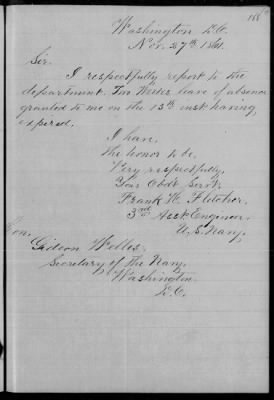 168
Washington D.C.
Nov. 27th 1861.
Sir.
I respectfully report to the
department. Two Weeks leave of absence
granted to me on the 13th inst having
expired.
I have,
the honor to be,
Very respectfully,
Your Obdt Servt,
Frank H. Fletcher,
3rd Asst Engineer,
U.S. Navy,
Hon.
Gideon Welles,
Secretary of the Navy,
Washington
D.C.